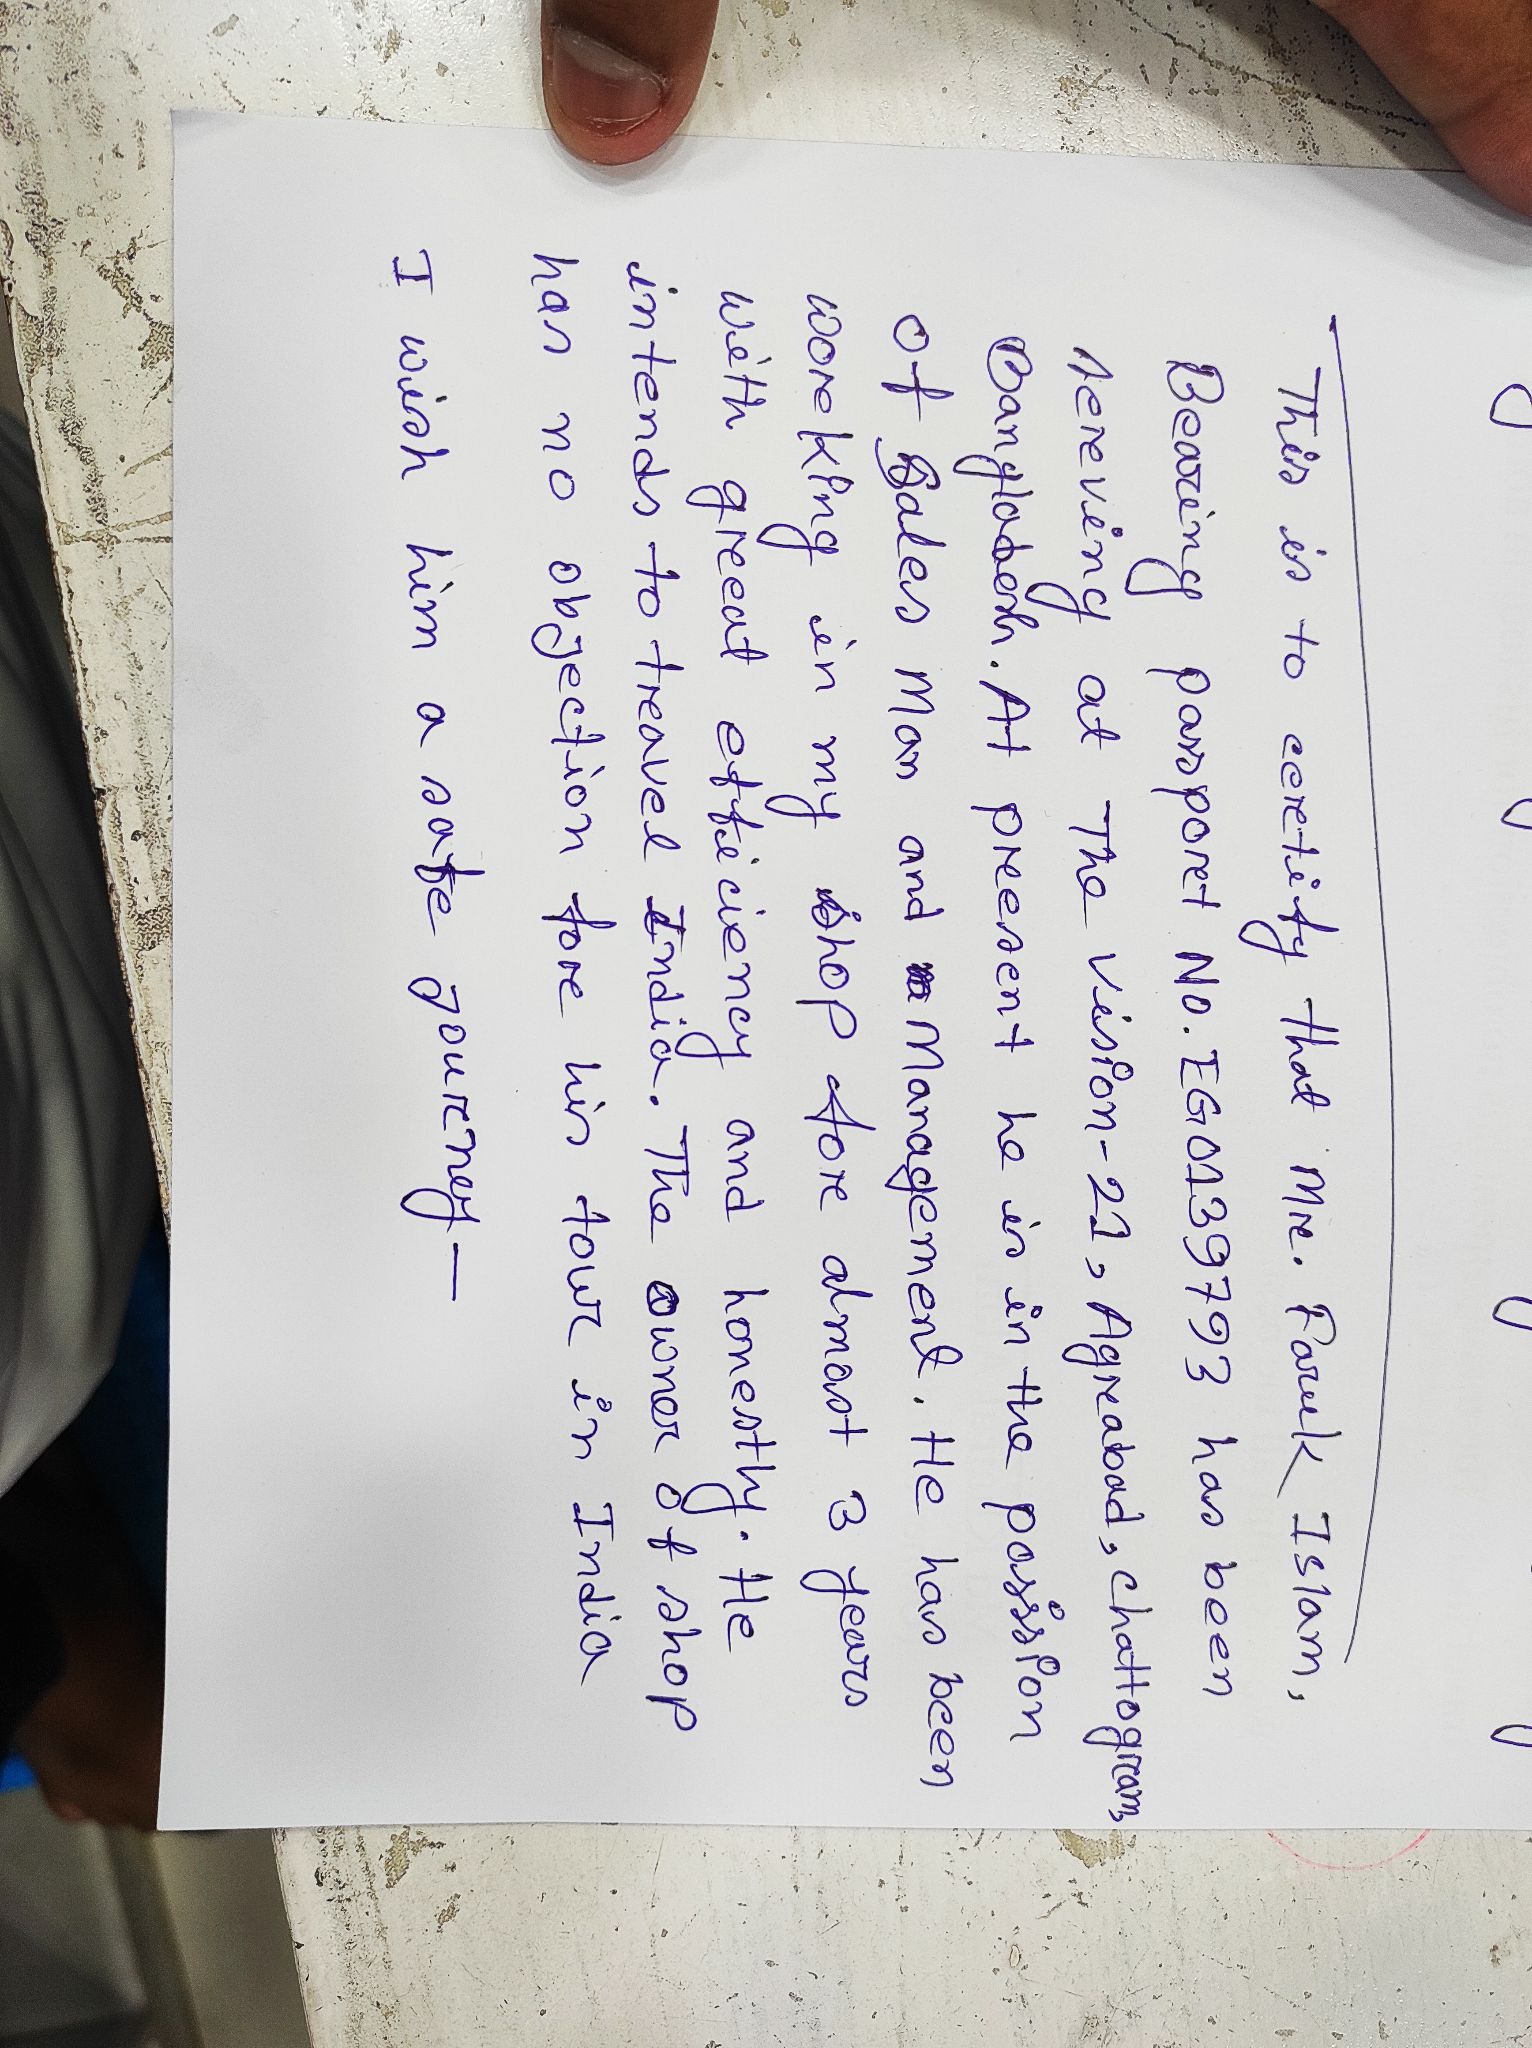 This is to certify that Mr. Faruk Islam,
Bearing passport No. EG0139793 has been
serving at The Vision-21, Agrabad, Chattogram,
Bangladesh. At present he is in the posission
of Sales Man and Management. He has been
working in my shop for almost 3 years
with great efficiency and honestly. He
intends to travel India. The owner of shop
has no objection for his tour in India
I wish him a safe journey—